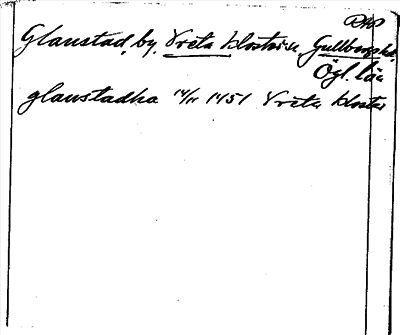 DMP
Glaustad, by. Vreta kloster sn Gullbergs hd.
Ögl. län
glaustadha 14/11 1451 Vreta kloster